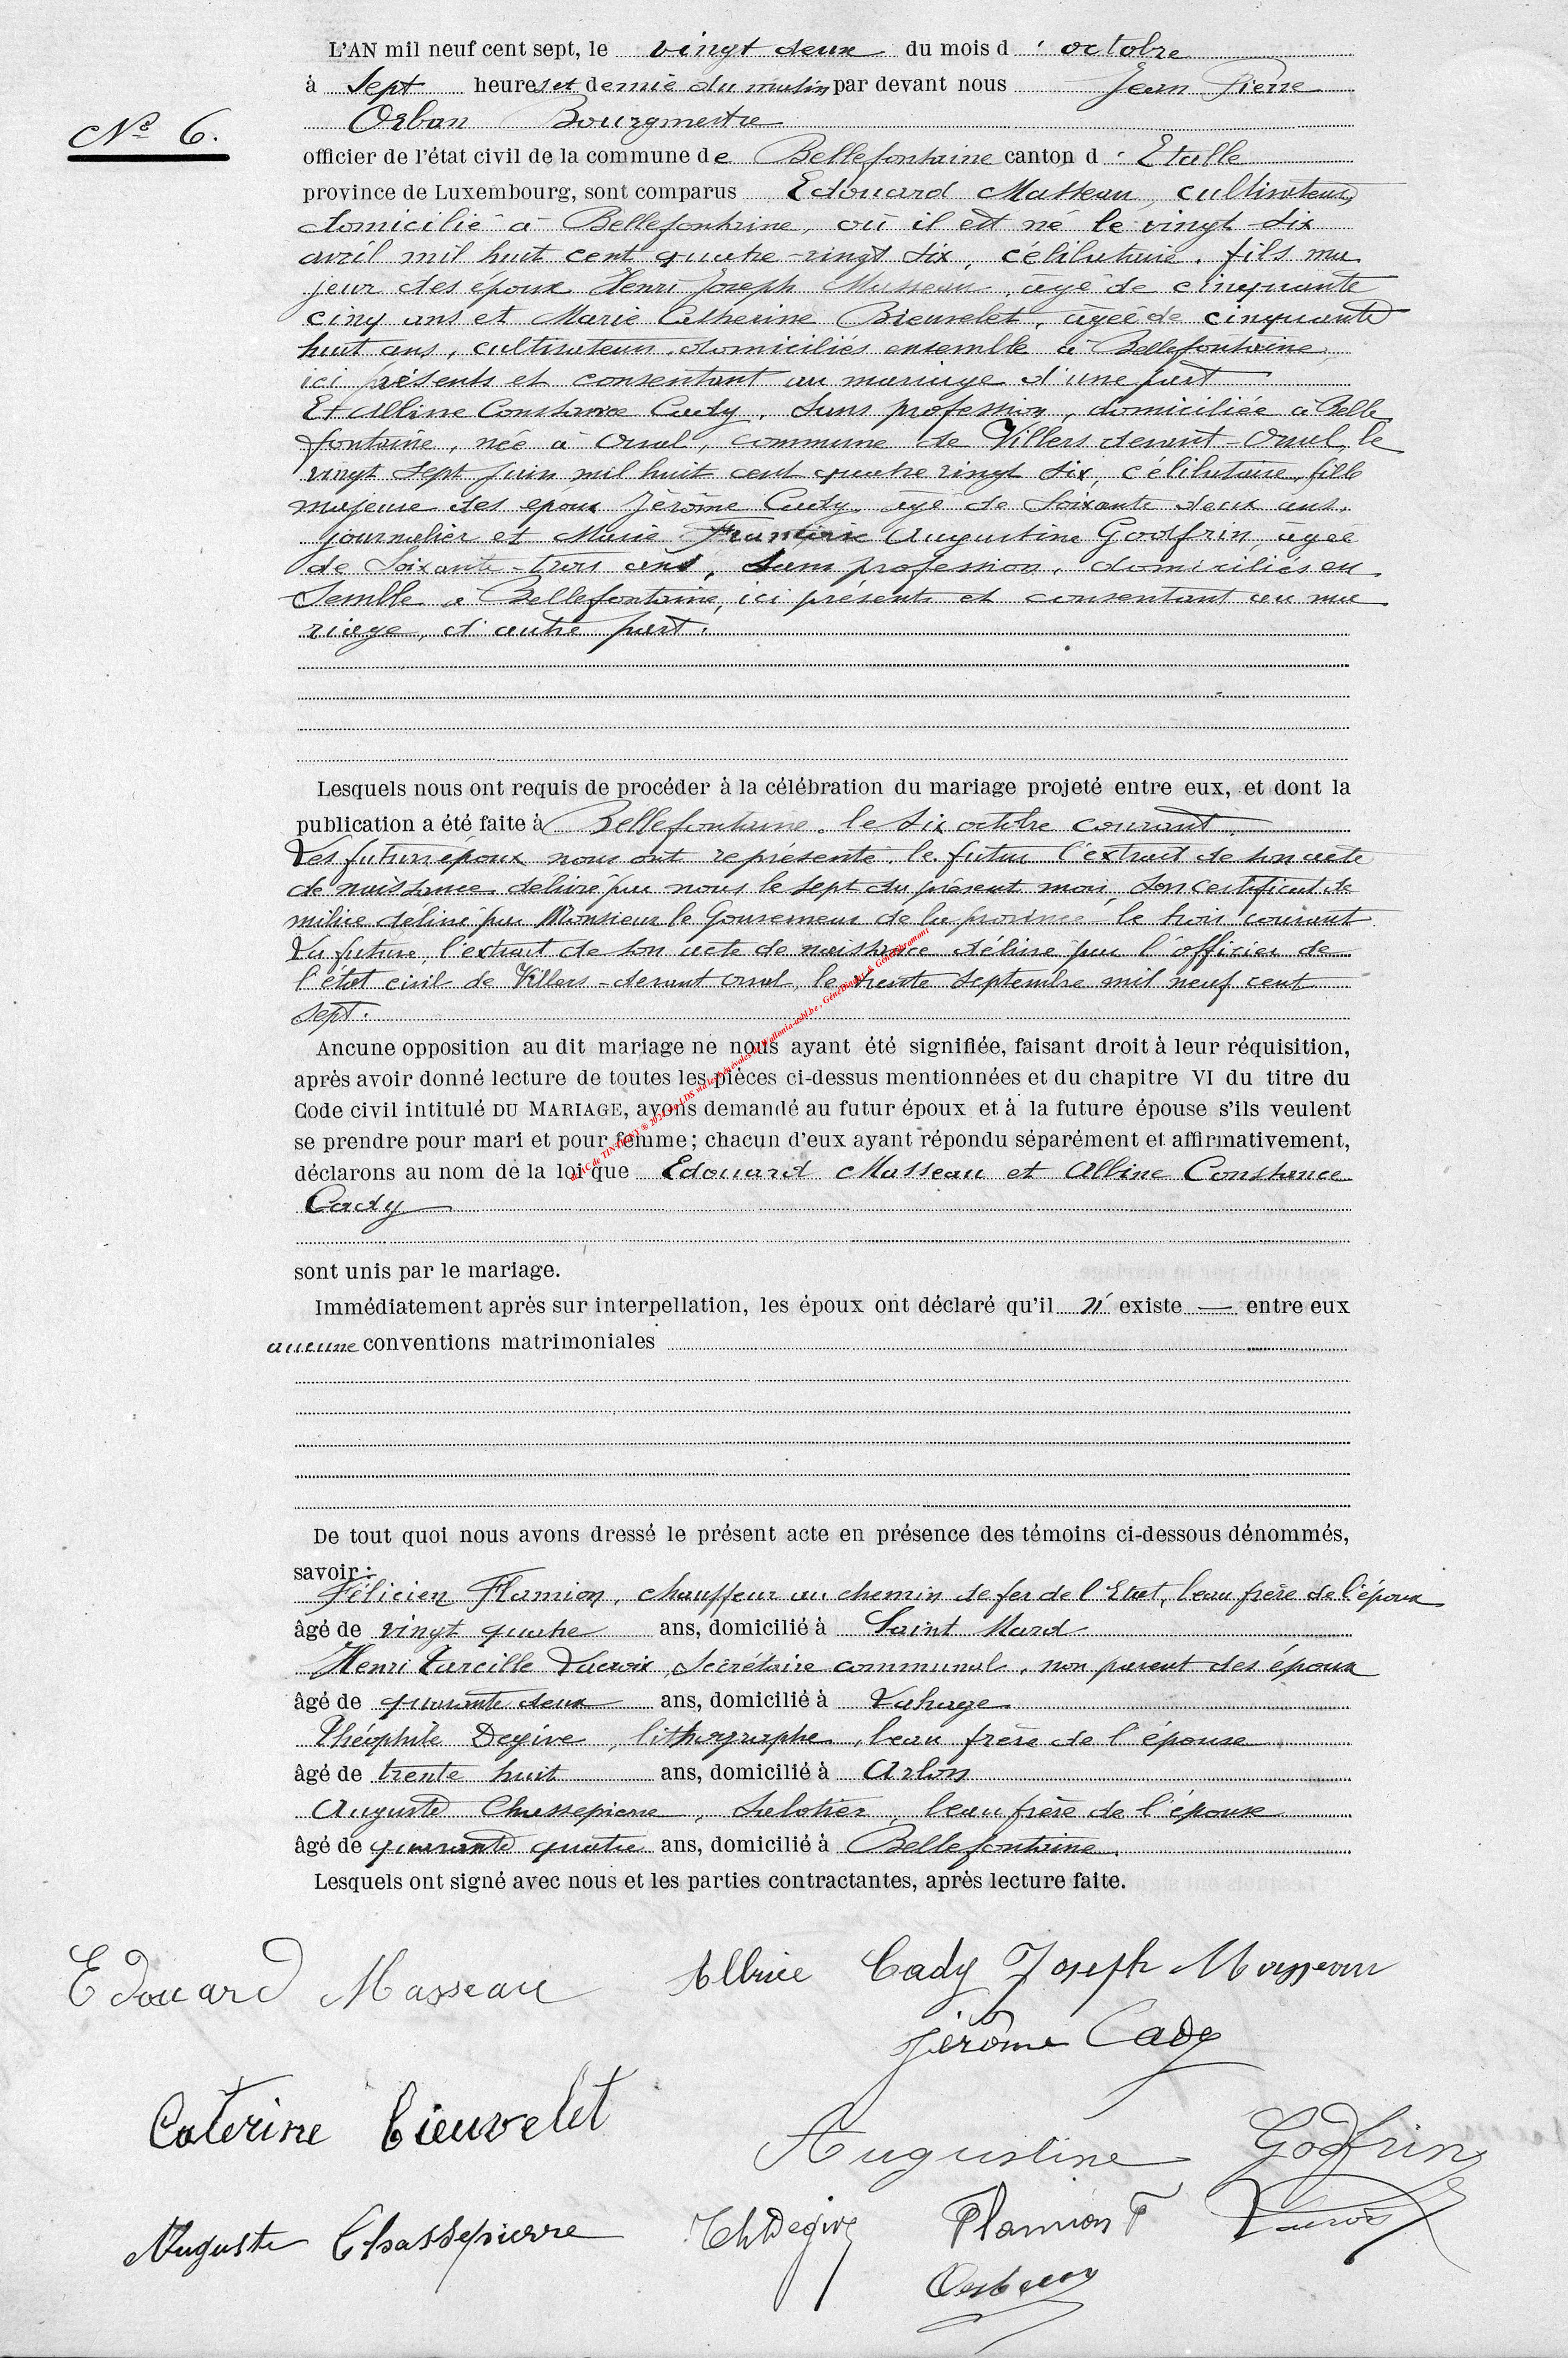 L'AN mil neuf cent sept, le vingt deux du mois d'octobre
à sept heures et demie du matin par devant nous Jean Pierre
N° 6.
Orban Bourgmestre
officier de l'état civil de la commune de Bellefontaine canton d'Etalle
province de Luxembourg, sont comparus Edouard Masseau, cultivateur,
domicilié à Bellefontaine, où il est né le vingt six
avril mil huit cent quatre-vingt six, célibataire, fils ma
jeur des époux Henri Joseph Masseau, âgé de cinquante
cinq ans et Marie Catherine Bieuvelet, âgée de cinquante
huit ans, cultivateurs, domiciliés ensemble à Bellefontaine,
ici présents et consentant au mariage d'une part
Et Albine Constance Cady, sans profession, domiciliée à Belle
fontaine, née à Orval, commune de Villers devant-Orval, le
vingt sept juin mil huit cent quatre vingt six, célibataire, fille
majeure des époux Jérôme Cady, âgé de soixante deux ans,
journalier et Marie Augustine Godfrin, âgée
de soixante-trois ans, sans profession, domiciliés en
semble à Bellefontaine, ici présents et consentant au ma
riage, d'autre part.
Lesquels nous ont requis de procéder à la célébration du mariage projeté entre eux, et dont la
publication a été faite à Bellefontaine, le six octobre courant.
Les futurs époux nous ont représenté, le futur l'extrait de son acte
de naissance délivré par nous le sept du présent mois, son certificat de
milice délivré par Monsieur le Gouverneur de la province le trois courant
La future, l'extrait de son acte de naissance délivré par l'officier de
l'état civil de Villers-devant Orval, le trente septembre mil neuf cent
sept.
Aucune opposition au dit mariage ne nous ayant été signifiée, faisant droit à leur réquisition,
après avoir donné lecture de toutes les pièces ci-dessus mentionnées et du chapitre VI du titre du
Code civil intitulé DU MARIAGE, avons demandé au futur époux et à la future épouse s'ils veulent
se prendre pour mari et pour femme; chacun d'eux ayant répondu séparément et affirmativement,
déclarons au nom de la loi que Edouard Masseau et Albine Constance
Cady
sont unis par le mariage.
Immédiatement après sur interpellation, les époux ont déclaré qu'il n'existe — entre eux
aucune conventions matrimoniales
De tout quoi nous avons dressé le présent acte en présence des témoins ci-dessous dénommés,
savoir:
Félicien Flamion, chauffeur au chemin de fer de l'Etat, beau frère de l'époux
âgé de vingt quatre ans, domicilié à Saint Mard
Henri Lacroix, Secrétaire communal, non parent des époux
âgé de quarante deux ans, domicilié à Lahage
Théophile Degive, lithographe, beau frère de l'épouse
âgé de trente huit ans, domicilié à Arlon
Auguste Chassepierre, sabotier, beau frère de l'épouse
âgé de quarante quatre ans, domicilié à Bellefontaine.
Lesquels ont signé avec nous et les parties contractantes, après lecture faite.
Edouard Masseau Albine Cady Joseph Masseau
Jérôme Cady
Caterine Bieuvelet
Augustine Godfrin
Auguste Chassepierre Th Degive Flamion F Lacroix
Orban